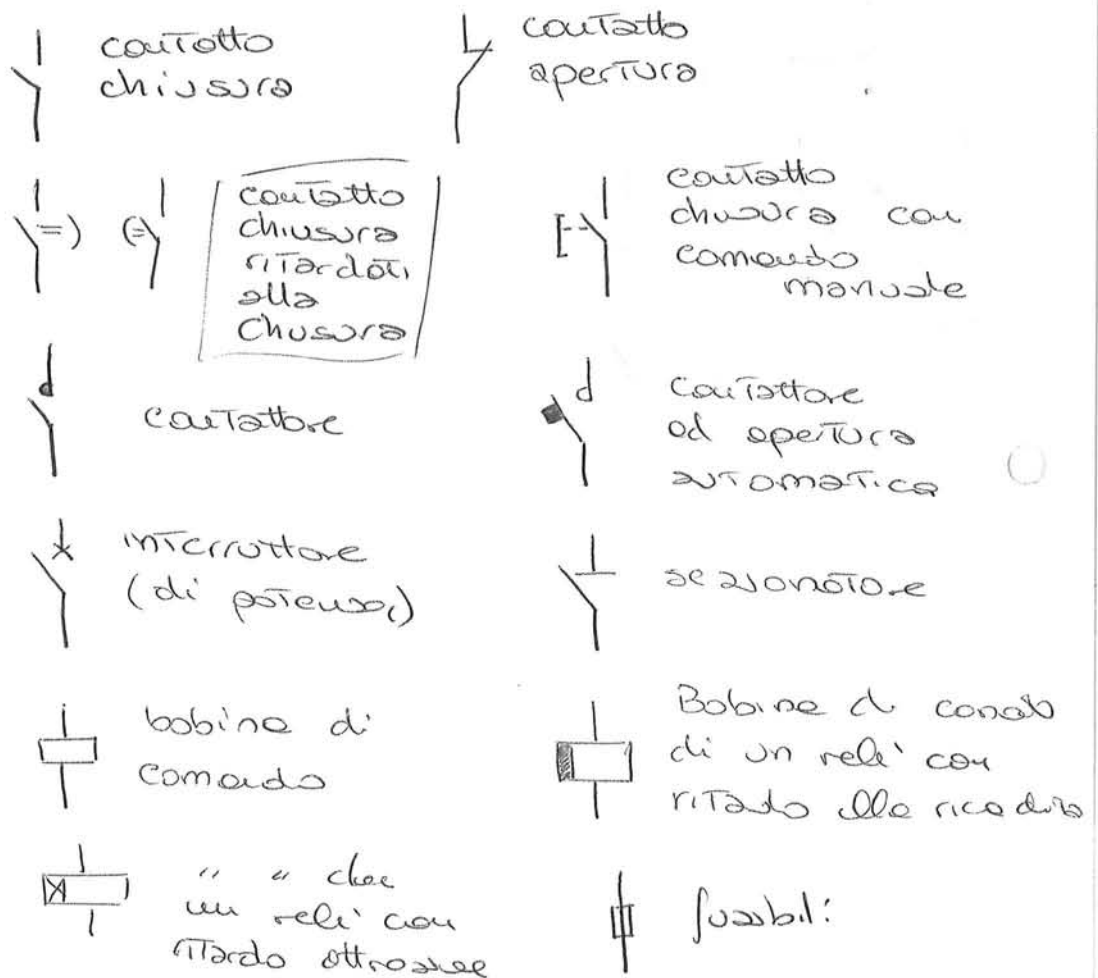 contatto
chiusura
contatto
apertura
contatto
chiusura
ritardati
alla
chusura
contatto
chusura con
comando
manuale
contattore
contattore
ad apertura
automatica
interruttore
(di potenza)
sezionatore
bobina di
comando
Bobina di
di un relè con
ritardo alla ricaduta
" "
un relè con
ritardo attrazione
fusibili